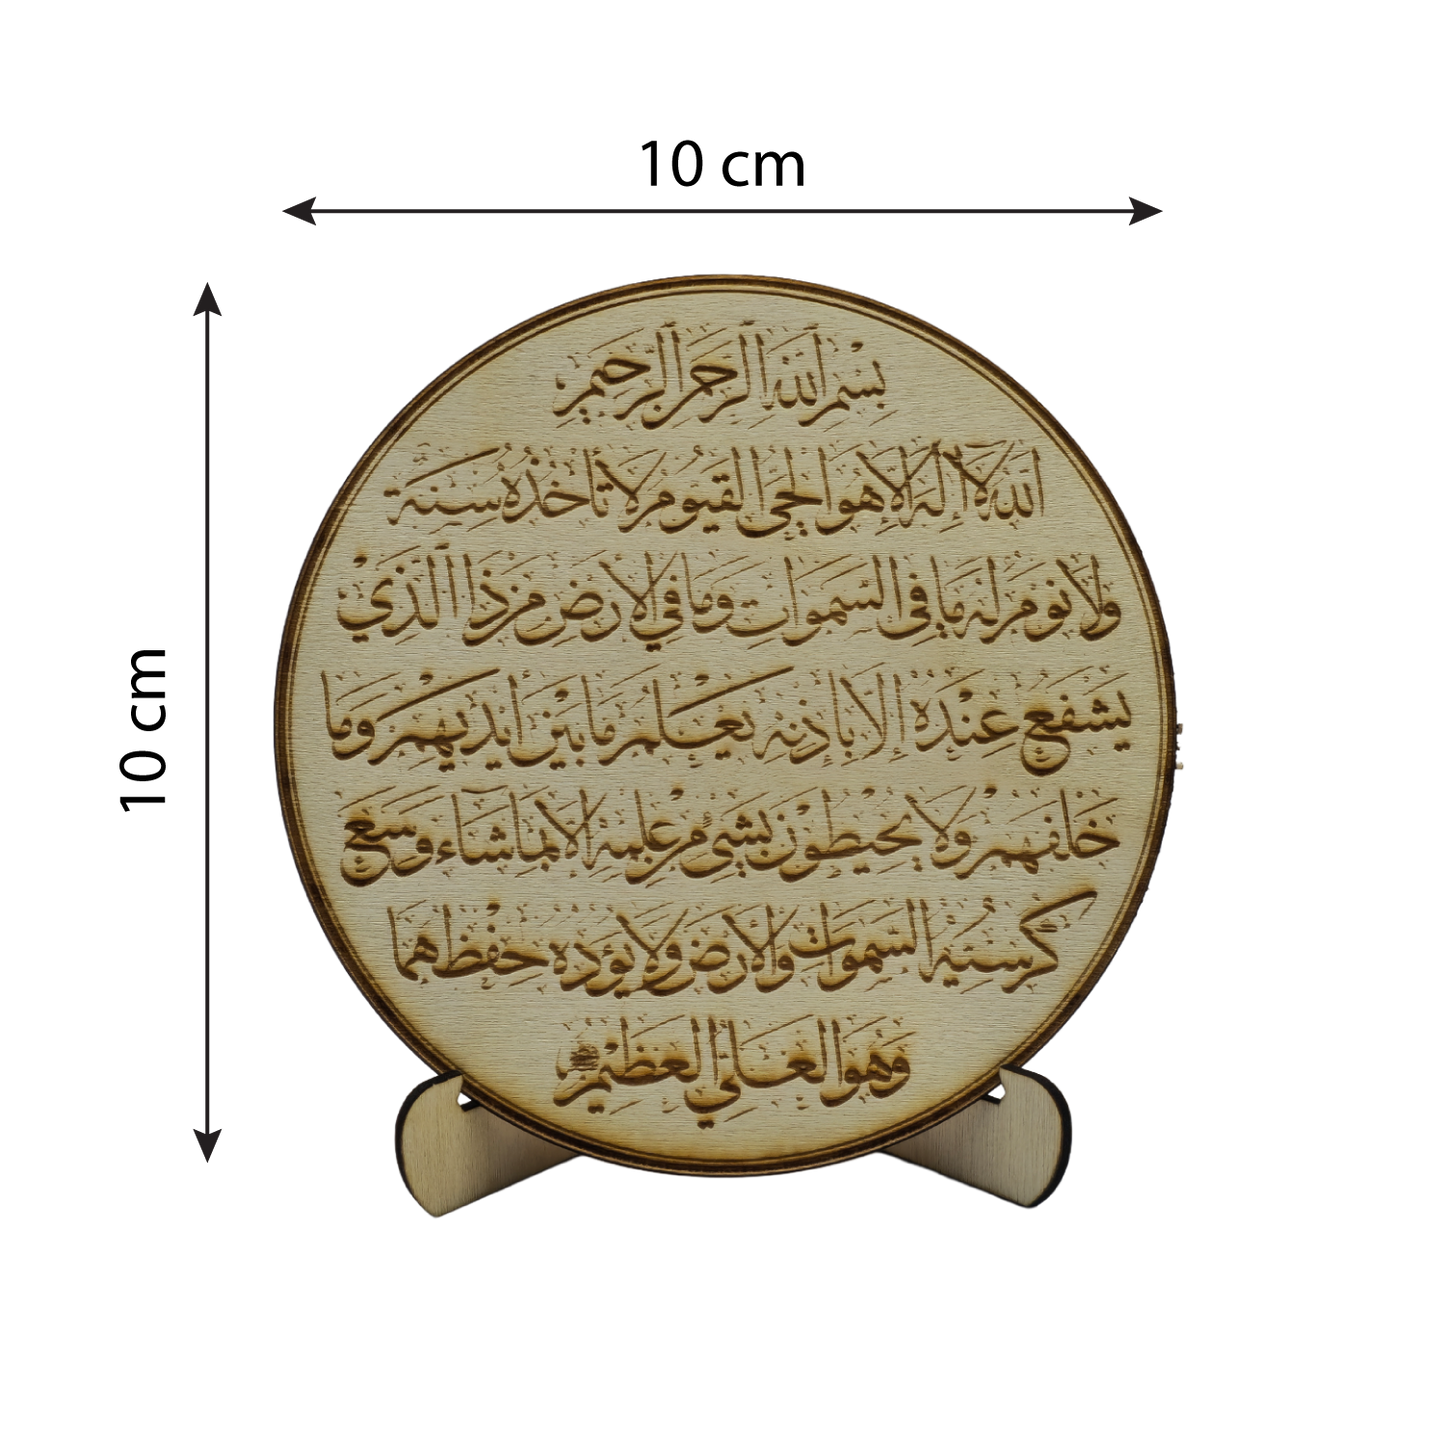 10 cm
10 cm
بسم الله الرحمن الرحيم
الله لا إله إلا هو الحي القيوم لا تأخذه سنة
ولا نوم له ما في السموات وما في الأرض من ذا الذي
يشفع عنده إلا بإذنه يعلم ما بين أيديهم وما
خلفهم ولا يحيطون بشيء من علمه إلا بما شاء وسع
كرسيه السموات والأرض ولا يؤده حفظهما
وهو العلي العظيم